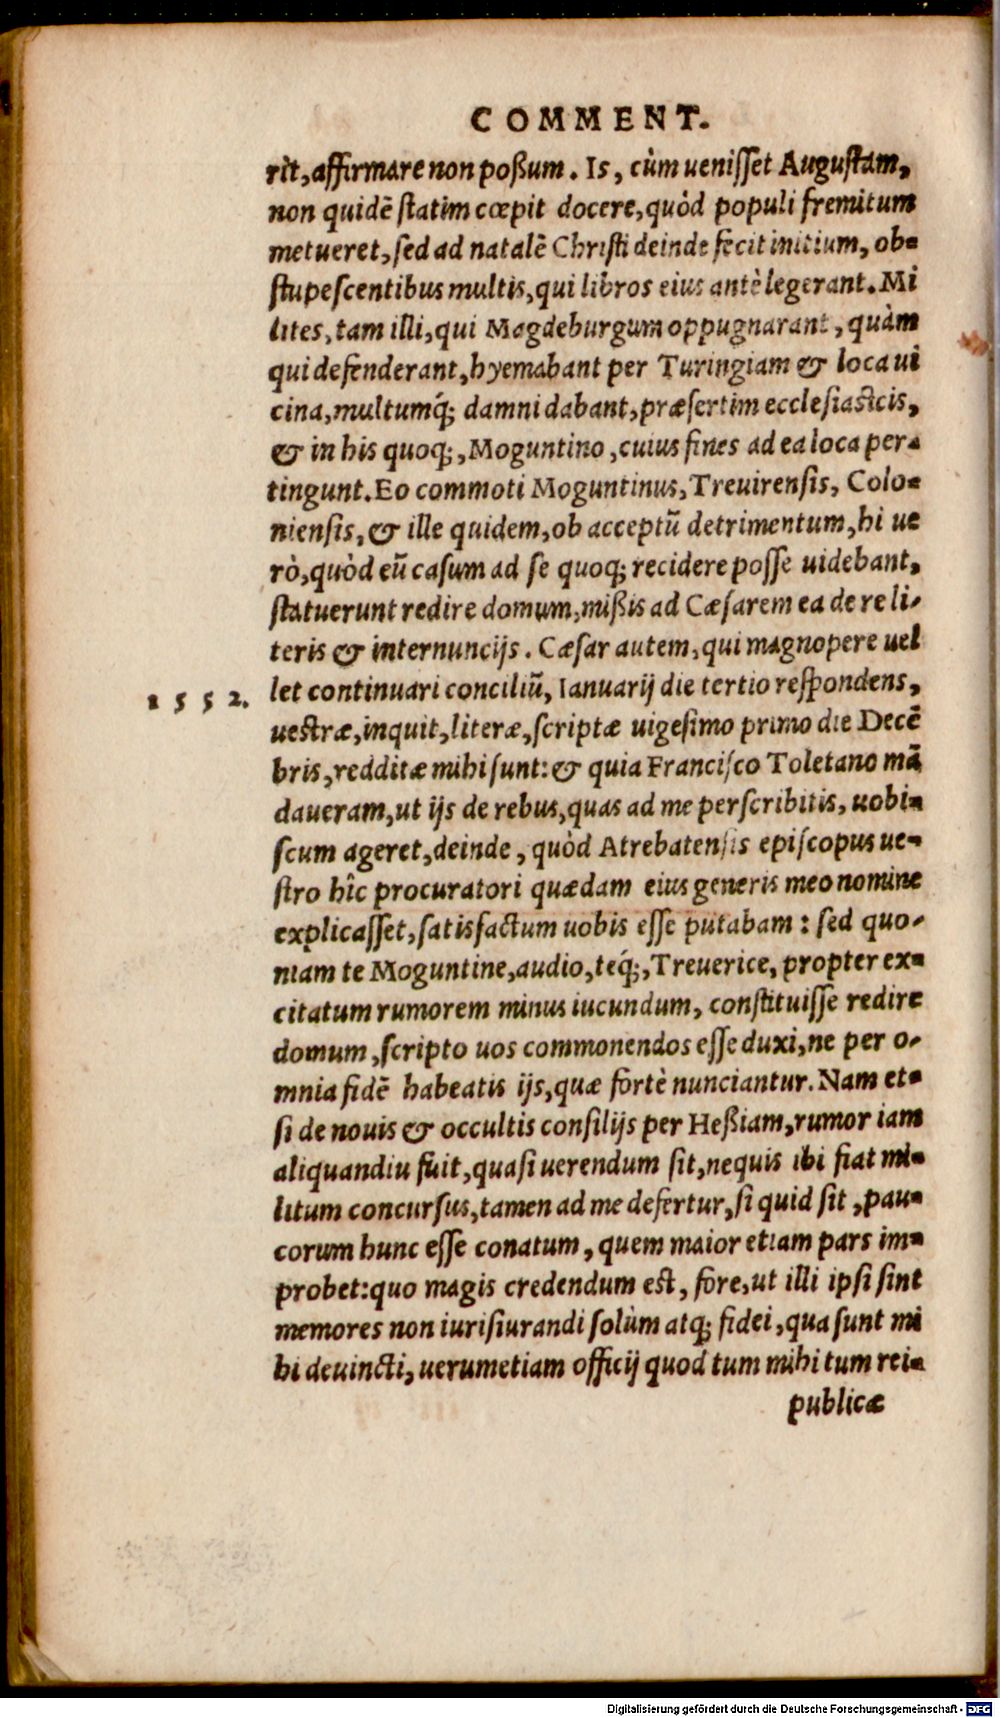 COMMENT.
rit, affirmare non poßum. Is, cùm uenisset Augustam,
non quidē statim cœpit docere, quòd populi fremitum
metueret, sed ad natalē Christi deinde fecit initium, ob-
stupescentibus multis, qui libros eius antè legerant. Mi
lites, tam illi, qui Magdeburgum oppugnarant, quàm
qui defenderant, hyemabant per Turingiam & loca ui
cina, multumq́; damni dabant, præsertim ecclesiasticis,
& in his quoq;, Moguntino, cuius fines ad ea loca per-
tingunt. Eo commoti Moguntinus, Treuirensis, Colo-
niensis, & ille quidem, ob acceptū detrimentum, hi ue
rò, quòd eū casum ad se quoq; recidere posse uidebant,
statuerunt redire domum, mißis ad Cæsarem ea de re li-
teris & internuncijs. Cæsar autem, qui magnopere uel
1552. let continuari conciliū, Ianuarij die tertio respondens,
uestræ, inquit, literæ, scriptæ uigesimo primo die Decē
bris, redditæ mihi sunt: & quia Francisco Toletano mā
daueram, ut ijs de rebus, quas ad me perscribitis, uobi-
scum ageret, deinde, quòd Atrebatensis episcopus ue-
stro hîc procuratori quædam eius generis meo nomine
explicasset, satisfactum uobis esse putabam: sed quo-
niam te Moguntine, audio, teq́;, Treuerice, propter ex-
citatum rumorem minus iucundum, constituisse redire
domum, scripto uos commonendos esse duxi, ne per o-
mnia fidē habeatis ijs, quæ fortè nunciantur. Nam et-
si de nouis & occultis consilijs per Heßiam, rumor iam
aliquandiu fuit, quasi uerendum sit, nequis ibi fiat mi-
litum concursus, tamen ad me defertur, si quid sit, pau-
corum hunc esse conatum, quem maior etiam pars im-
probet: quo magis credendum est, fore, ut illi ipsi sint
memores non iurisiurandi solùm atq; fidei, qua sunt mi
hi deuincti, uerumetiam officij quod tum mihi tum rei-
publicæ
Digitalisierung gefördert durch die Deutsche Forschungsgemeinschaft - DFG